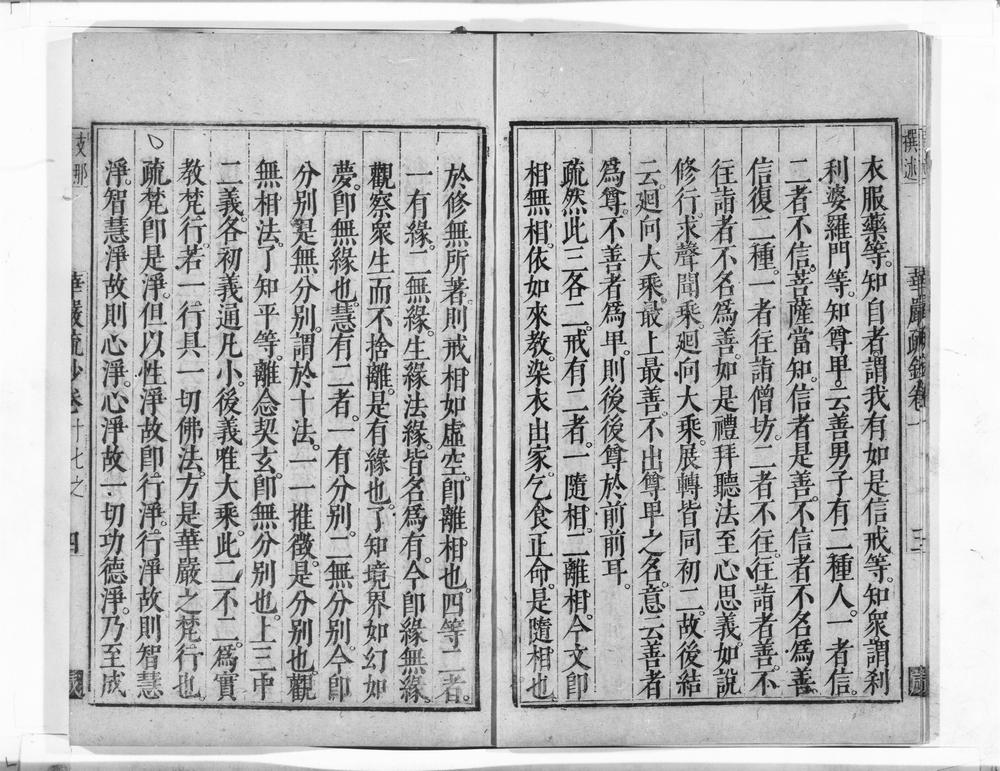 衣服藥等。知自者。謂我有如是信戒等。知衆。謂刹
利婆羅門等。知尊卑。云善男子有二種人。一者信
二者不信。菩薩當知。信者是善。不信者不名爲善。
信復二種。一者往詣僧坊。二者不往。往詣者善。不
往詣者不名爲善。如是禮拜聽法至心思義如說
修行。求聲聞乘。廻向大乘。展轉皆同初二。故後結
云。廻向大乘。最上最善。不出尊卑之名。意云善者
爲尊。不善者爲卑。則後後尊於前前耳。
疏然此三各二。戒有二者。一隨相。二離相。今文卽
相無相。依如來教。染衣出家。乞食正命。是隨相也。
於修無所著。則戒相如虛空。卽離相也。四等二者。
一有緣。二無緣。生緣法緣。皆名爲有。今卽緣無緣。
觀察衆生而不捨離。是有緣也。了知境界如幻如
夢。卽無緣也。慧有二者。一有分別。二無分別。今卽
分別是無分別。謂於十法。一一推徵。是分別也。觀
無相法。了知平等。離念契玄。卽無分別也。上三中
二義各初義通凡小。後義唯大乘。此二不二。爲實
教梵行。若一行具一切佛法。方是華嚴之梵行也。
疏梵卽是淨。但以性淨故。卽行淨。行淨故則智慧
淨。智慧淨故則心淨。心淨故一切功德淨。乃至成
撰述
華嚴疏鈔卷
三
支那
華嚴疏鈔卷十七之
四